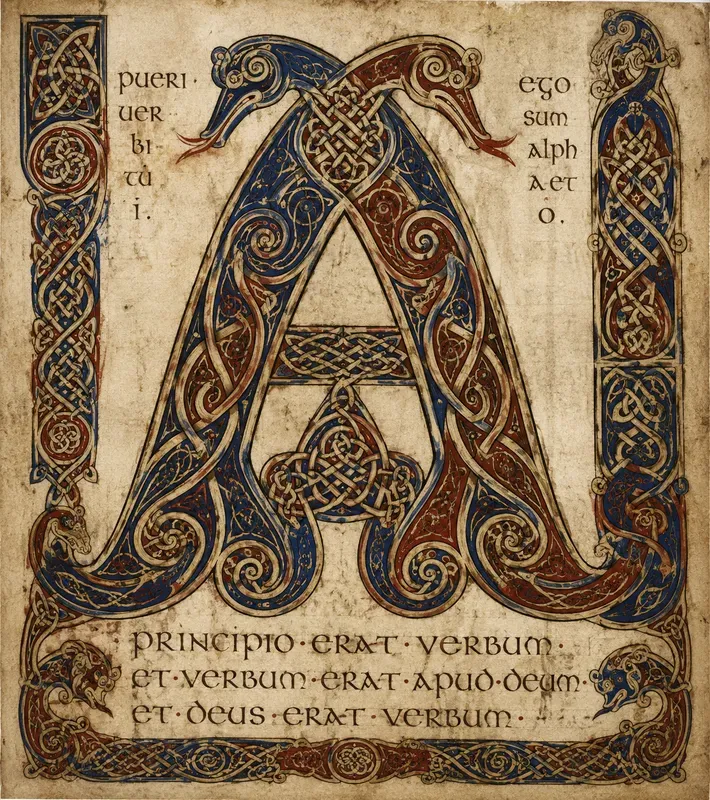 pueri·
uer
bi·
tū
i.
ego
sum
alph
a et
o.
A
principio·erat·verbum·
et·verbum·erat·apud·deum·
et·deus·erat·verbum·